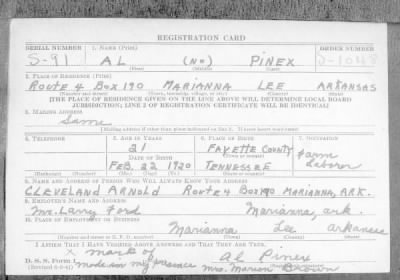 REGISTRATION CARD
SERIAL NUMBER 1. NAME (Print) ORDER NUMBER
S-91 AL (No) PINEX S-1048
(First) (Middle) (Last)
2. PLACE OF RESIDENCE (Print)
ROUTE 4 BOX 190 MARIANNA LEE ARKANSAS
[THE PLACE OF RESIDENCE GIVEN ON THE LINE ABOVE WILL DETERMINE LOCAL BOARD
JURISDICTION; LINE 2 OF REGISTRATION CERTIFICATE WILL BE IDENTICAL]
3. MAILING ADDRESS
Same
[Mailing address if other than place indicated on line 2. If same insert word same]
4. TELEPHONE 5. AGE IN YEARS 6. PLACE OF BIRTH 7. OCCUPATION
21 FAYETTE COUNTY Farm
DATE OF BIRTH (Town or county) Laborer
FEB. 22 1920 TENNESSEE
(Mo.) (Day) (Yr.) (State or country)
8. NAME AND ADDRESS OF PERSON WHO WILL ALWAYS KNOW YOUR ADDRESS
CLEVELAND ARNOLD ROUTE 4 BOX 190 MARIANNA, ARK.
9. EMPLOYER'S NAME AND ADDRESS
Mr. Larry Ford Marianna, ark.
10. PLACE OF EMPLOYMENT OR BUSINESS
Marianna Lee arkansas
(Number and street or R. F. D. number) (Town) (County) (State)
I AFFIRM THAT I HAVE VERIFIED ABOVE ANSWERS AND THAT THEY ARE TRUE.
X mark of Al Pinex
D. S. S. Form 1 made in my presence Mrs. Marion Brown